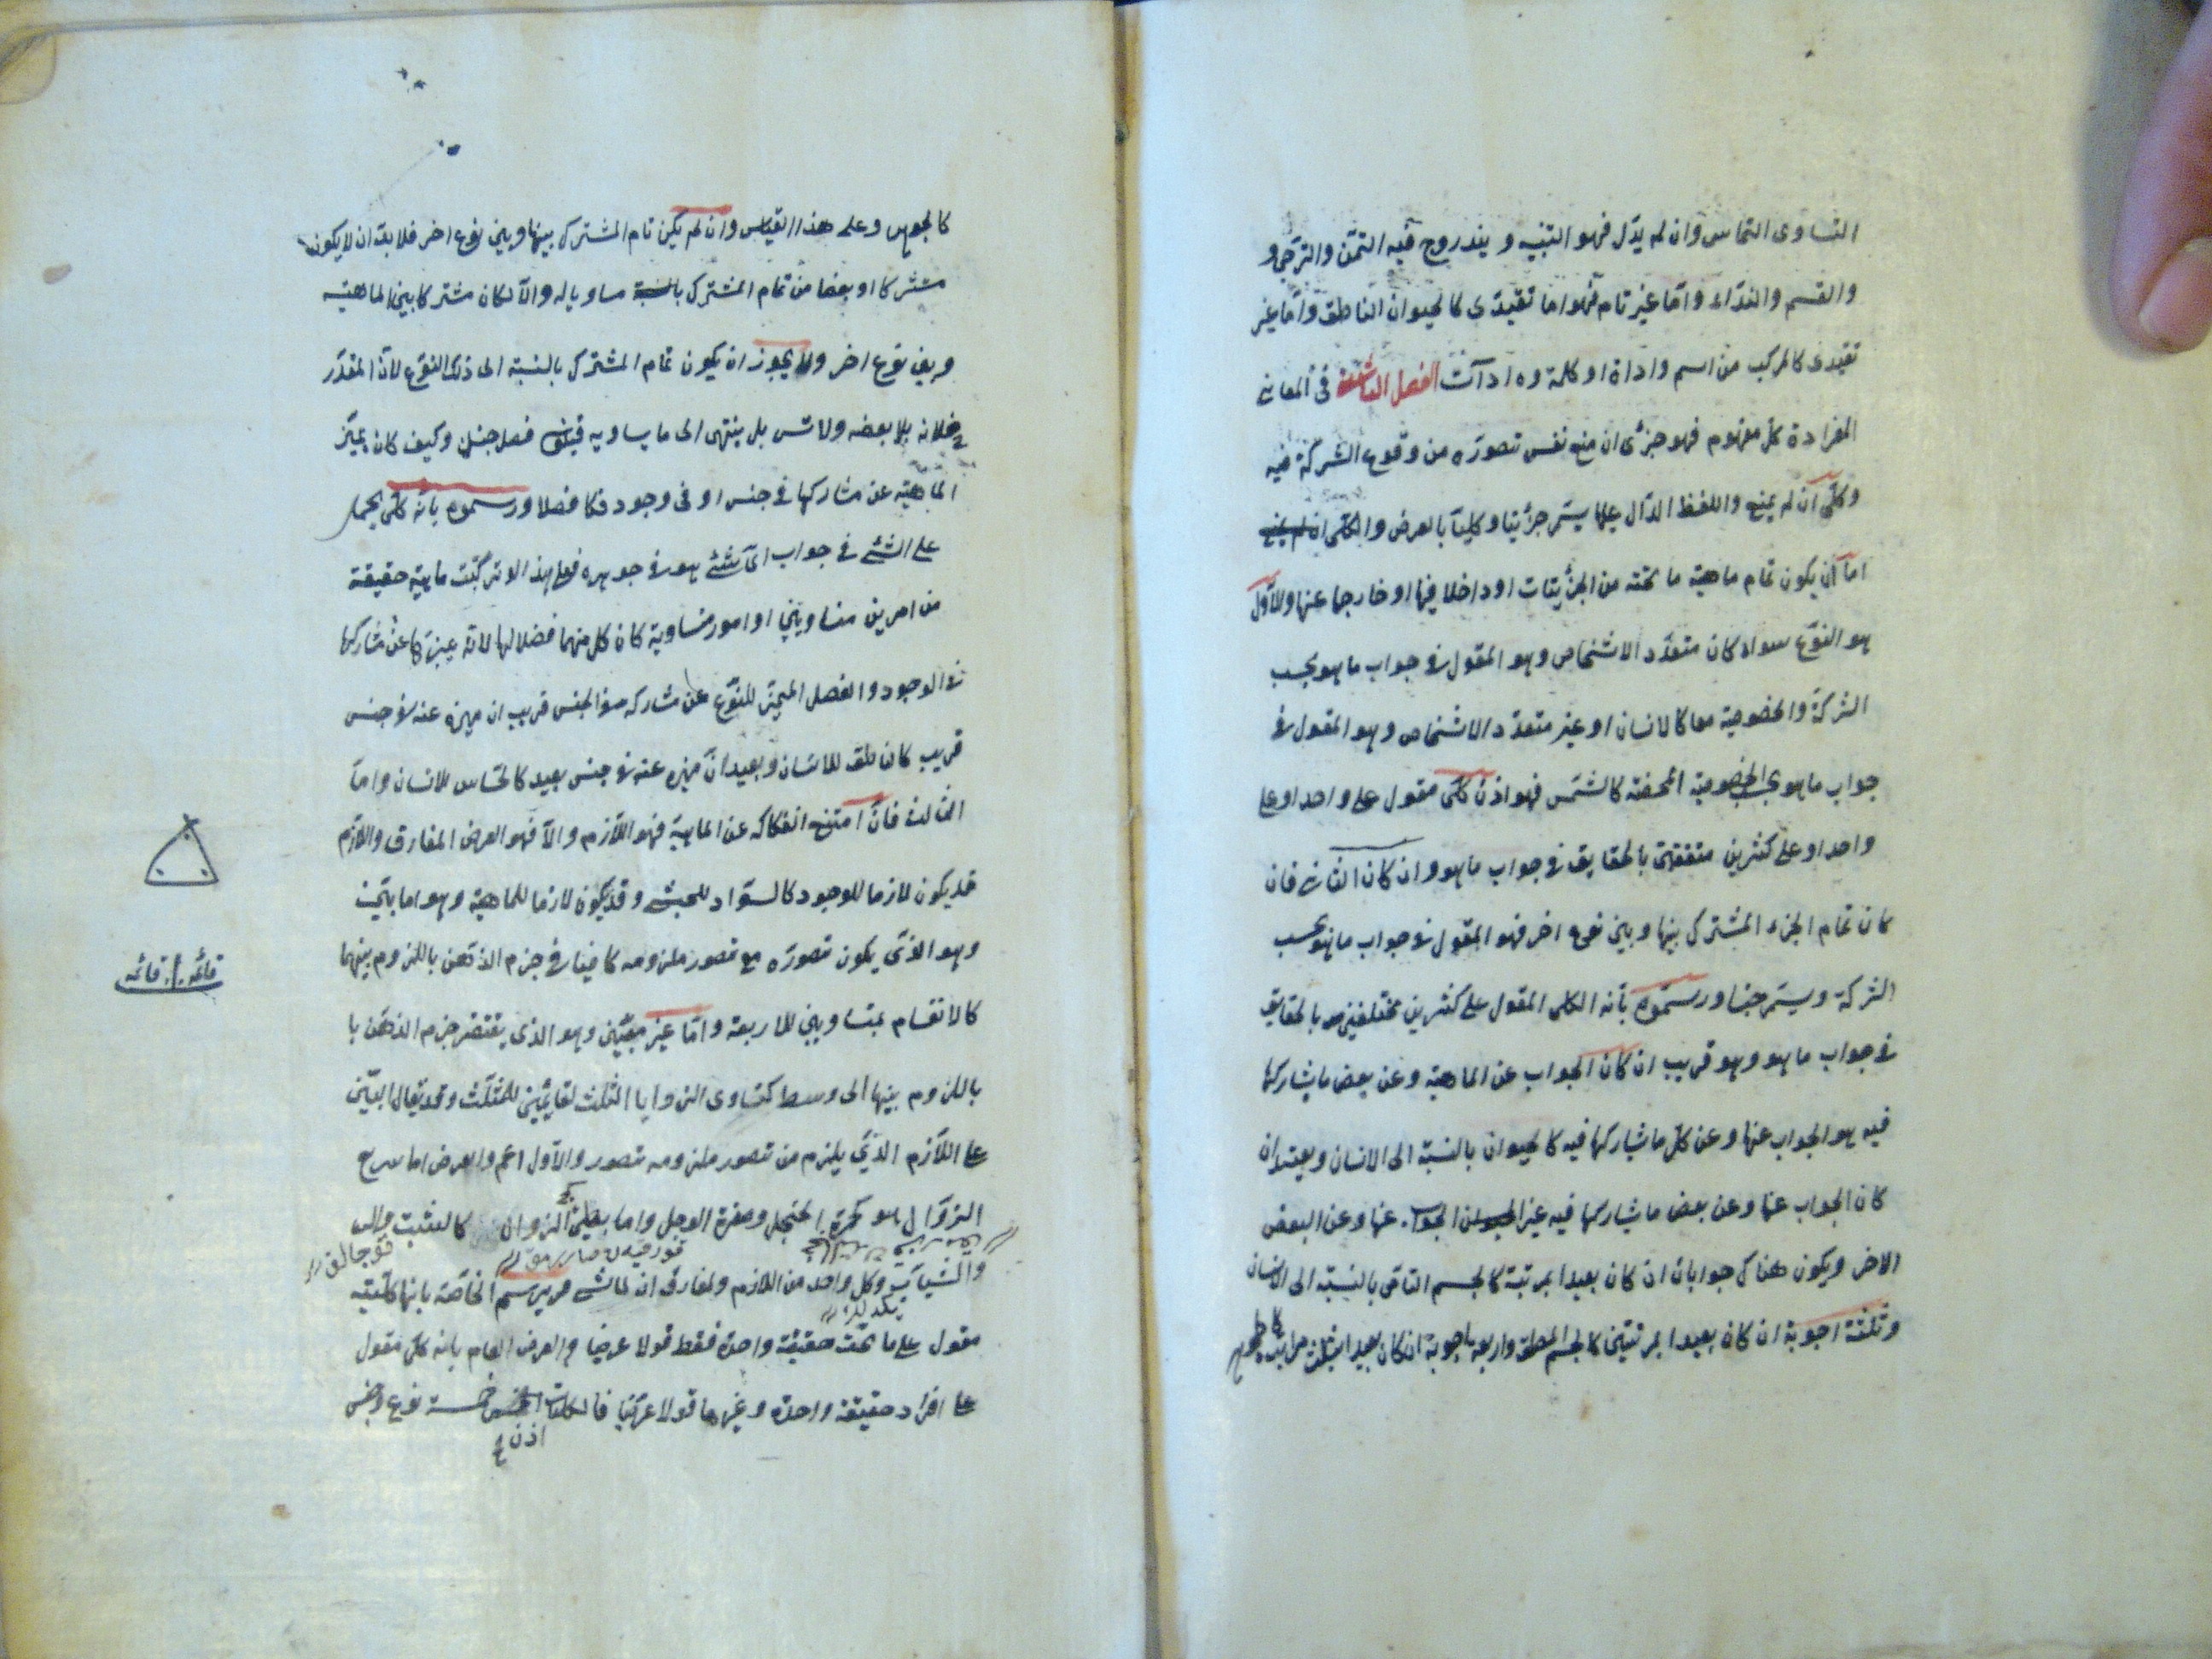 التساوى التماس وان لم يدل فهو التنبيه ويندروج فيه التمنى والترجى و
والقسم والنداء واما غير تام فهو اما تقيدى كالحيوان الناطق واما غير
تقيدى كالمركب من اسم واداة او كلمة وه اداآت الفصل الثانى فى المعانى
المفرادة كل مفهوم فهو جزئى ان منع نفس تصوره من وقوع الشركة فيه
وكلى ان لم يمنع واللفظ الدال عليهما يسمى جزئيا وكليا بالعرض والكلى ان لم يمنع
اما ان يكون تمام ماهية ما تحته من الجزئيات او داخلا فيها او خارجا عنها والاول
هو النوع سواء كان متعدد الاشخاص وهو المقول فى جواب ما هو بحسب
الشركة والخصوصية معا كالانسان او غير متعدد الاشخاص وهو المقول فى
جواب ما هو بحسب الخصوصية المحضة كالشمس فهو اذن كلى مقول على واحد او على
واحد او على كثيرين متفقين بالحقايق فى جواب ما هو وان كان الثانى فان
كان تمام الجزء المشترك بينها وبين نوع اخر فهو المقول فى جواب ما هو بحسب
الشركة ويسمى جنسا ورسموه بانه الكلى المقول على كثيرين مختلفين بالحقايق
فى جواب ما هو وهو قريب ان كان الجواب عن الماهية وعن بعض ما يشاركها
فيه هو الجواب عنها وعن كل ما يشاركها فيه كالحيوان بالنسبة الى الانسان وبعيد ان
كان الجواب عنها وعن بعض ما يشاركها فيه غير الجواب عنها وعن البعض
الاخر ويكون هناك جوابان ان كان بعيدا بمرتبة كالجسم النامى بالنسبة الى الانسان
وثلثة اجوبة ان كان بعيدا بمرتبتين كالجسم المطلق واربعة اجوبة ان كان بعيدا بثلث مراتب كالجوهر
كالجوهر وعلى هذا القياس وان لم يكن تام المشترك بينها وبين نوع اخر فلا بد ان لا يكون
مشتركا او بعضا من تمام المشترك بالنسبة مساويا له والا لكان مشتركا بين الماهية
وبين نوع اخر ولا يجوز ان يكون تمام المشترك بالنسبة الى ذلك النوع لان المقدر
خلافه بل بعضه ولا بل ينتهى الى ما يساويه فيكون فصل جنس وكيف كان يميز
الماهية عن مشاركها فى جنس او فى وجود فكان فصلا ورسموه بانه كلى يحمل
على الشئ فى جواب اى شئ هو فى جوهره فعلى هذا لو تركبت ماهية حقيقة
من امرين متساويين او امور متساوية كان كل منهما فصلا لها لانه يميزها عن مشاركها
فى الوجود والفصل المميز للنوع عن مشاركه فى الجنس قريب ان ميزه عنه فى جنس
قريب كالناطق للانسان وبعيد ان ميزه عنه فى جنس بعيد كالحساس للانسان واما
الثالث فان امتنع انفكاكه عن الماهية فهو اللازم والا فهو العرض المفارق واللازم
قد يكون لازما للوجود كالسواد للحبشى وقد يكون لازما للماهية وهو اما بين
وهو الذى يكون تصوره مع تصور ملزومه كافيا فى جزم الذهن باللزوم بينهما
كالانقسام بمتساويين للاربعة واما غير بين وهو الذى يفتقر جزم الذهن با
باللزوم بينها الى وسط كتساوى الزوايا الثلث لقائمتين للمثلث وقد يقال البين
على اللازم الذى يلزم من تصور ملزومه تصور والاول اعم والعرض اما سريع
الزوال كحمرة الخجل وصفرة الوجل واما بطئ الزوال كالشيب
والشباب وكل واحد من اللازم والمفارق ان
يرسم الخاصة بانها كلية
مقول على ما تحت حقيقة واحدة فقط قولا عرضيا والعرض العام بانه كلى مقول
على افراد حقيقة واحدة وغيرها قولا عرضيا فالكليات خمسة نوع وجنس
اذن
قائمه قائمه